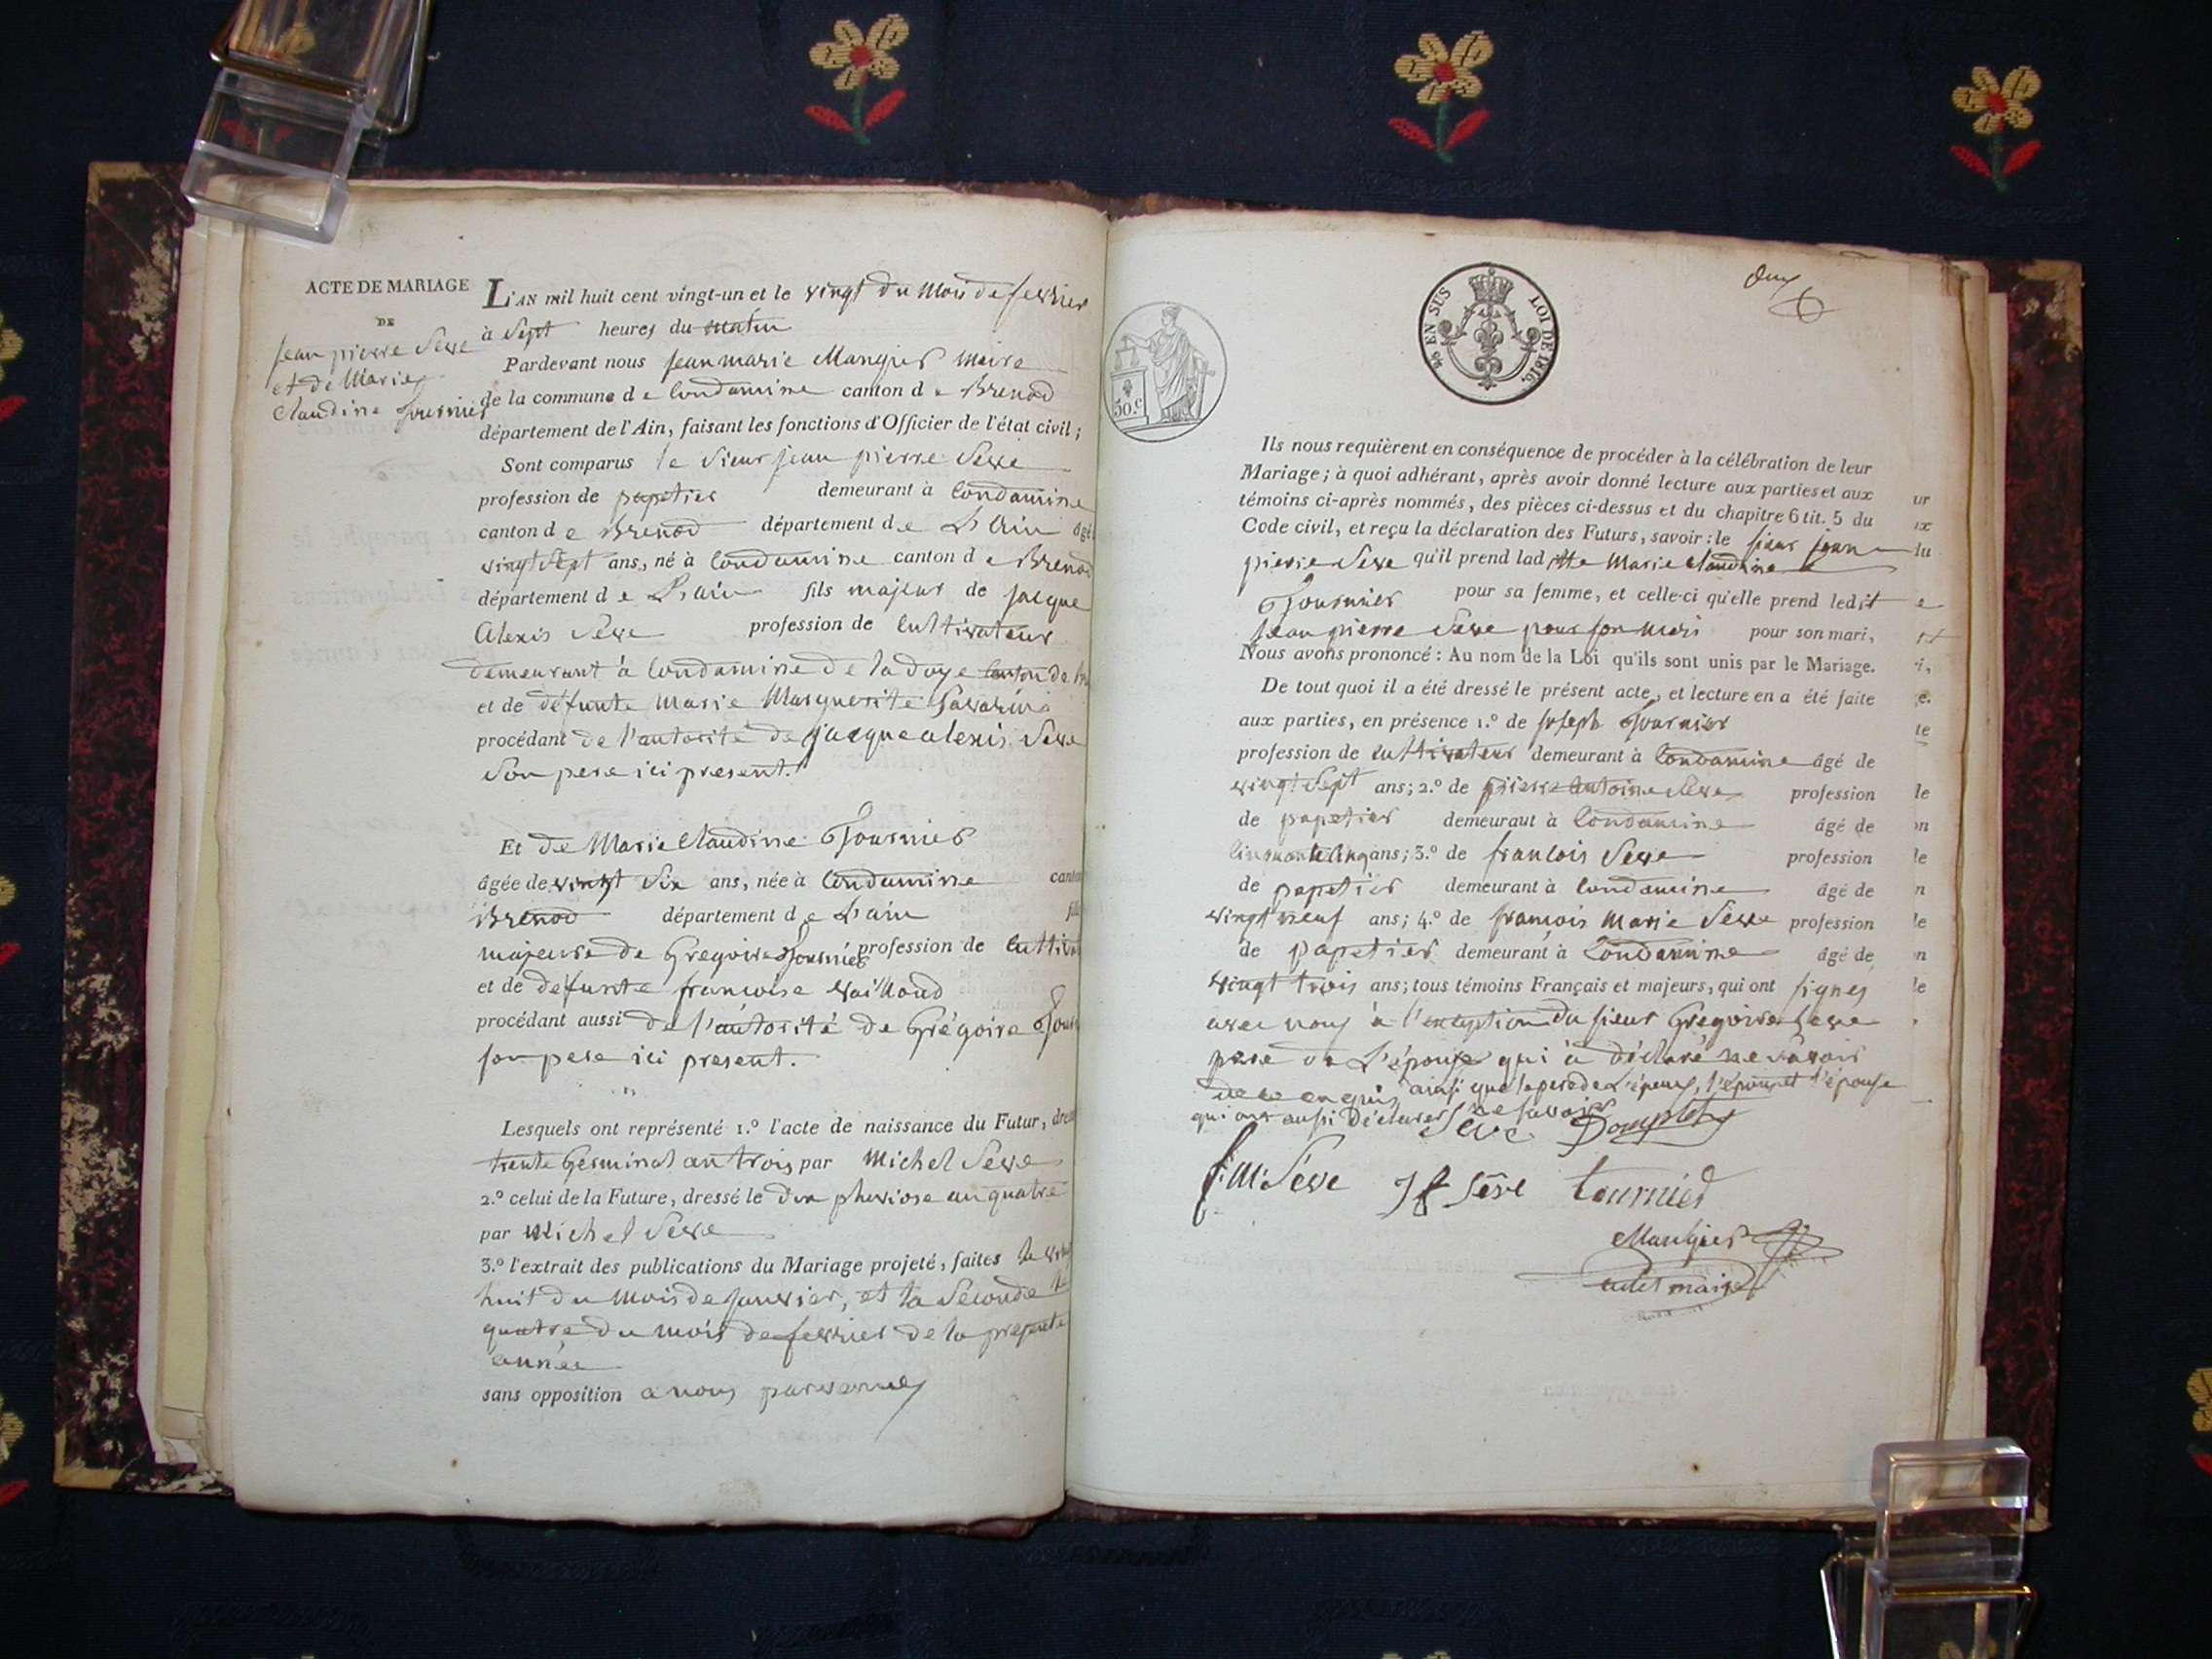 ACTE DE MARIAGE
DE
jean pierre Seve
et de Marie
Claudine fournier
L'AN mil huit cent vingt-un et le vingt du mois de fevrier
à Sept heures du matin
Pardevant nous jean marie Mangier Maire
de la commune de Condamine canton de Brenod
département de l'Ain, faisant les fonctions d'Officier de l'état civil;
Sont comparus le Sieur jean pierre Seve
profession de papetier demeurant à Condamine
canton de Brenod département de L'Ain âgé
vingt Sept ans, né à Condamine canton de Brenod
département de L'ain fils majeur de jacque
Alexis Seve profession de Cultivateur
demeurant à Condamine de la doye canton de
et de défunte Marie Marguerite Savarin
procédant de l'autorité de jacque alexis Seve
Son pere ici present.
Et de Marie Claudine fournier
âgée de vingt Six ans, née à Condamine canton
Brenod département de L'ain
majeure de Gregoire fournier profession de Cultiva
et de defunte francoise Vailloud
procédant aussi de l'autorité de Grégoire four
son pere ici present.
Lesquels ont représenté 1.º l'acte de naissance du Futur, dressé
trente Germinal an trois par Michel Seve
2.º celui de la Future, dressé le dix pluviose an quatre
par Michel Seve
3.º l'extrait des publications du Mariage projeté, faites le vingt
huit du mois de janvier, et la Seconde le
quatre du mois de fevrier de la presente
année
sans opposition a nous parvenues
30.c
EN SUS LOI DE 1816.
Ils nous requièrent en conséquence de procéder à la célébration de leur
Mariage; à quoi adhérant, après avoir donné lecture aux parties et aux
témoins ci-après nommés, des pièces ci-dessus et du chapitre 6 tit. 5 du
Code civil, et reçu la déclaration des Futurs, savoir: le sieur jean
pierre Seve qu'il prend laditte Marie Claudine
fournier pour sa femme, et celle-ci qu'elle prend ledit
jean pierre Seve pour son mari pour son mari,
Nous avons prononcé: Au nom de la Loi qu'ils sont unis par le Mariage.
De tout quoi il a été dressé le présent acte, et lecture en a été faite
aux parties, en présence 1.º de joseph fournier
profession de cultivateur demeurant à Condamine âgé de
vingt Sept ans; 2.º de pierre antoine Seve profession
de papetier demeurant à Condamine âgé de
Cinquante Cinq ans; 3.º de francois Seve profession
de papetier demeurant à Condamine âgé de
vingt neuf ans; 4.º de françois Marie Sève profession
de papetier demeurant à Condamine âgé de
vingt trois ans; tous témoins Français et majeurs, qui ont signes
avec nous à l'exception du sieur Gregoire Seve
pere de L'épouse qui à déclaré ne savoir
de ce enquis ainsi que le pere de L'époux, l'époux et l'épouse
qui ont aussi Déclarer ne savoir
Seve
f. M. Seve Seve tournier
Mangier
maire